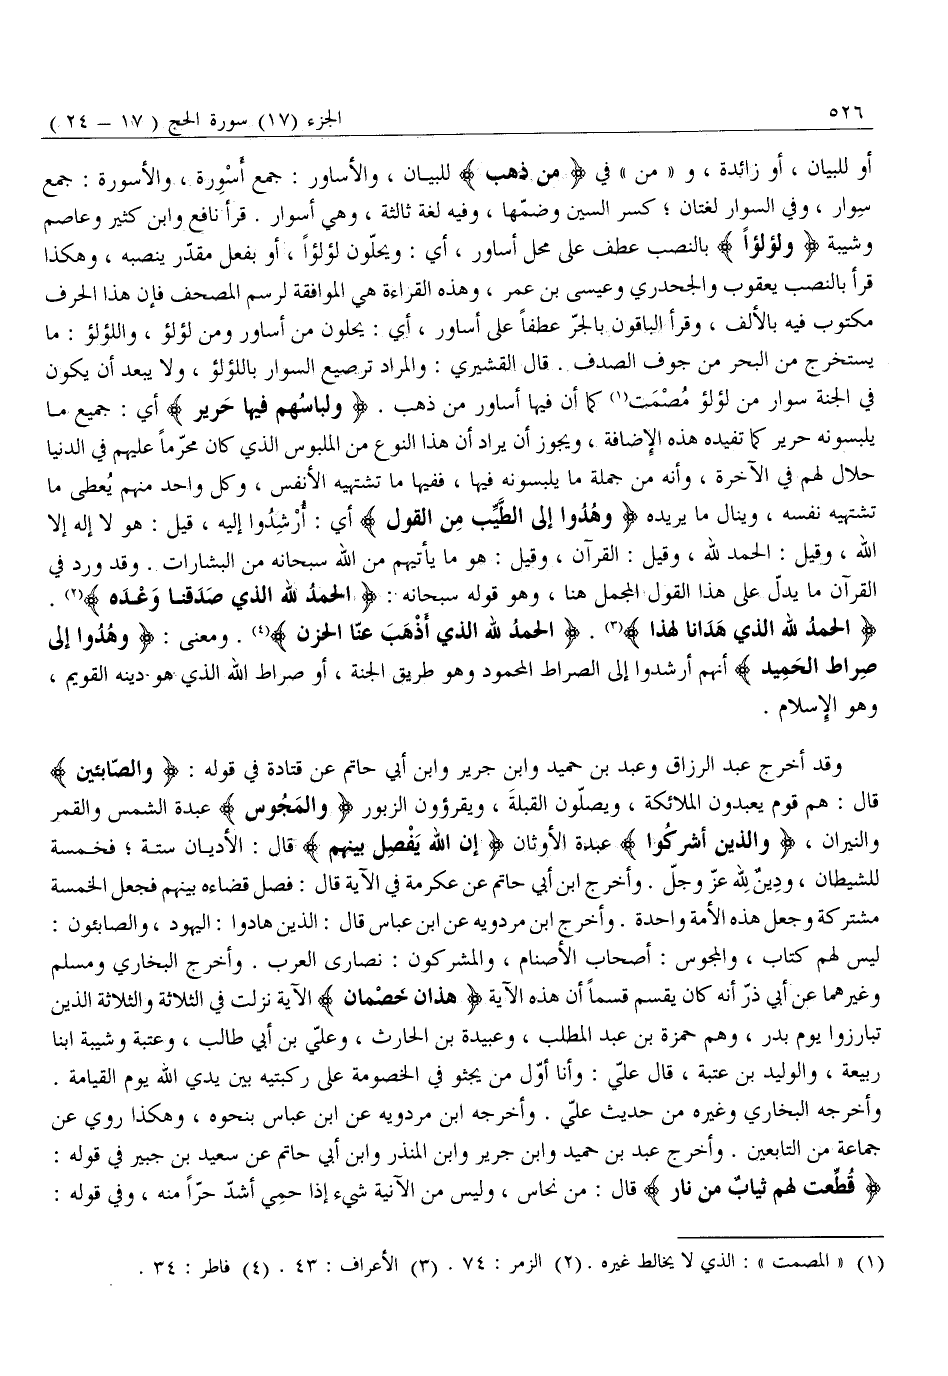 ٥٢٦
الجزء (١٧) سورة الحج ( ١٧ – ٢٤ )
أو للبيان ، أو زائدة ، و « من » في ﴿ من ذهب ﴾ للبيـان ، والأساور : جمع أَسْوِرة ، والأسورة : جمع
سِوار ، وفي السوار لغتان ؛ كسر السين وضمّها ، وفيه لغة ثالثة ، وهي أسوار . قرأ نافع وابن كثير وعاصم
وشيبة ﴿ ولؤلؤاً ﴾ بالنصب عطف على محل أساور ، أي : ويحلّون لؤلؤاً ، أو بفعل مقدّر ينصبه ، وهكذا
قرأ بالنصب يعقوب والجحدري وعيسى بن عمر ، وهذه القراءة هي الموافقة لرسم المصحف فإن هذا الحرف
مكتوب فيه بالألف ، وقرأ الباقون بالجرّ عطفاً على أساور ، أي : يحلون من أساور ومن لؤلؤ ، واللؤلؤ : ما
يستخرج من البحر من جوف الصدف . قال القشيري : والمراد ترصيع السوار باللؤلؤ ، ولا يبعد أن يكون
في الجنة سوار من لؤلؤ مُصْمَت(١) كما أن فيها أساور من ذهب . ﴿ ولباسُهم فيها حَرير ﴾ أي : جميع مـا
يلبسونه حرير كما تفيده هذه الإضافة ، ويجوز أن يراد أن هذا النوع من الملبوس الذي كان محرّماً عليهم في الدنيا
حلال لهم في الآخرة ، وأنه من جملة ما يلبسونه فيها ، ففيها ما تشتهيه الأنفس ، وكل واحد منهم يُعطى ما
تشتهيه نفسه ، وينال ما يريده ﴿ وهُدُوا إلى الطَّيِّب مِن القول ﴾ أي : أُرْشِدُوا إليه ، قيل : هو لا إله إلا
الله ، وقيل : الحمد لله ، وقيل : القرآن ، وقيل : هو ما يأتيهم من الله سبحانه من البشارات . وقد ورد في
القرآن ما يدلّ على هذا القول المجمل هنا ، وهو قوله سبحانه : ﴿ الحمدُ لله الذي صدَقنـا وَعْدَه ﴾(٢) .
﴿ الحمدُ لله الذي هَدَانا لهذا ﴾(٣) . ﴿ الحمدُ لله الذي أَذْهَبَ عنّا الحزن ﴾(٤) . ومعنى : ﴿ وهُدُوا إلى
صِراط الحَمِيد ﴾ أنهم أرشدوا إلى الصراط المحمود وهو طريق الجنة ، أو صراط الله الذي هو دينه القويم ،
وهو الإسلام .
وقد أخرج عبد الرزاق وعبد بن حميد وابن جرير وابن أبي حاتم عن قتادة في قوله : ﴿ والصّابئين ﴾
قال : هم قوم يعبدون الملائكة ، ويصلّون القبلةَ ، ويقرؤون الزبور ﴿ والمَجُوس ﴾ عبدة الشمس والقمر
والنيران ، ﴿ والذين أشركُوا ﴾ عبدة الأوثان ﴿ إن الله يَفْصِل بينهم ﴾ قال : الأديـان ستـة ؛ فخـمسة
للشيطان ، ودِينٌ لله عزّ وجلّ . وأخرج ابن أبي حاتم عن عكرمة في الآية قال : فصل قضاءه بينهم فجعل الخمسة
مشتركة وجعل هذه الأمة واحدة . وأخرج ابن مردويه عن ابن عباس قال : الذين هادوا : اليهود ، والصابئون :
ليس لهم كتاب ، والمجوس : أصحاب الأصنام ، والمشركون : نصارى العرب . وأخرج البخاري ومسلم
وغيرهما عن أبي ذرّ أنه كان يقسم قسماً أن هذه الآية ﴿ هذان خَصْمان ﴾ الآية نزلت في الثلاثة والثلاثة الذين
تبارزوا يوم بدر ، وهم حمزة بن عبد المطلب ، وعبيدة بن الحارث ، وعليّ بن أبي طالب ، وعتبة وشيبة ابنا
ربيعة ، والوليد بن عتبة ، قال عليّ : وأنا أوّل من يجثو في الخصومة على ركبتيه بين يدي الله يوم القيامة .
وأخرجه البخاري وغيره من حديث عليّ . وأخرجه ابن مردويه عن ابن عباس بنحوه ، وهكذا روي عن
جماعة من التابعين . وأخرج عبد بن حميد وابن جرير وابن المنذر وابن أبي حاتم عن سعيد بن جبير في قوله :
﴿ قُطِّعت لهم ثيابٌ من نار ﴾ قال : من نحاس ، وليس من الآنية شيء إذا حمِي أشدّ حرّاً منه ، وفي قوله :
(١) « المصمت » : الذي لا يخالط غيره . (٢) الزمر : ٧٤ . (٣) الأعراف : ٤٣ . (٤) فاطر : ٣٤ .